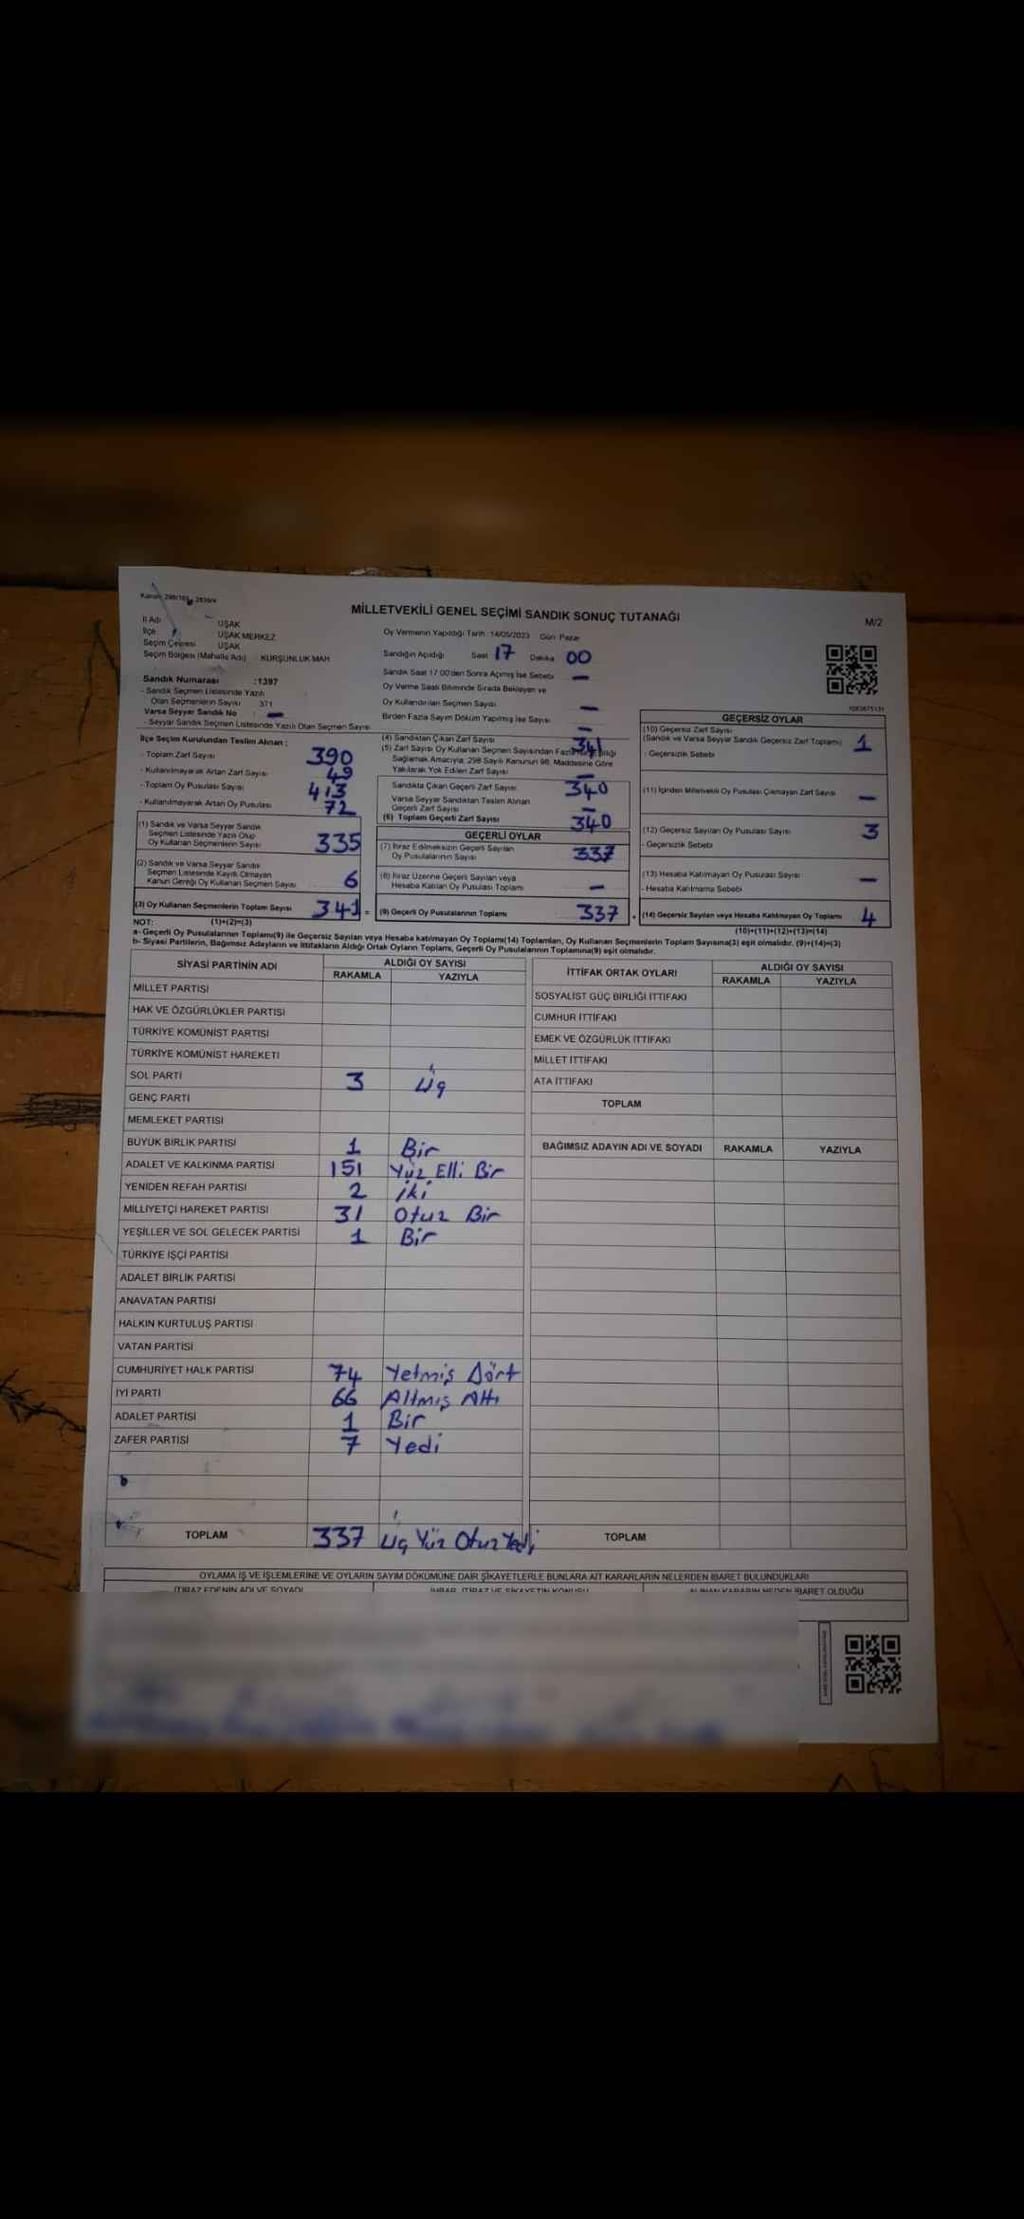 MİLLETVEKİLİ GENEL SEÇİMİ SANDIK SONUÇ TUTANAĞI
M/2
İl Adı : UŞAK
İlçe : UŞAK MERKEZ
Seçim Çevresi : UŞAK
Seçim Bölgesi (Mahalle Adı) : KURŞUNLUK MAH
Sandık Numarası :1397
- Sandık Seçmen Listesinde Yazılı
Olan Seçmenlerin Sayısı 371
Varsa Seyyar Sandık No : -
- Seyyar Sandık Seçmen Listesinde Yazılı Olan Seçmen Sayısı
Oy Vermenin Yapıldığı Tarih : 14/05/2023 Gün: Pazar
Sandığın Açıldığı Saat 17 Dakika 00
Sandık Saat 17.00'den Sonra Açılmış İse Sebebi -
Oy Verme Saati Bitiminde Sırada Bekleyen ve
Oy Kullandırılan Seçmen Sayısı -
Birden Fazla Sayım Döküm Yapılmış İse Sayısı -
İlçe Seçim Kurulundan Teslim Alınan :
- Toplam Zarf Sayısı 390
- Kullanılmayarak Artan Zarf Sayısı 49
- Toplam Oy Pusulası Sayısı 413
- Kullanılmayarak Artan Oy Pusulası 72
(1) Sandık ve Varsa Seyyar Sandık
Seçmen Listesinde Yazılı Olup
Oy Kullanan Seçmenlerin Sayısı 335
(2) Sandık ve Varsa Seyyar Sandık
Seçmen Listesinde Kayıtlı Olmayan
Kanun Gereği Oy Kullanan Seçmen Sayısı 6
(3) Oy Kullanan Seçmenlerin Toplam Sayısı 341 =
(1)+(2)=(3)
(4) Sandıktan Çıkan Zarf Sayısı 341
(5) Zarf Sayısı Oy Kullanan Seçmen Sayısından Fazla
Sağlamak Amacıyla, 298 Sayılı Kanunun 98. Maddesine Göre
Yakılarak Yok Edilen Zarf Sayısı -
Sandıkta Çıkan Geçerli Zarf Sayısı 340
Varsa Seyyar Sandıktan Teslim Alınan
Geçerli Zarf Sayısı -
(6) Toplam Geçerli Zarf Sayısı 340
GEÇERLİ OYLAR
(7) İtiraz Edilmeksizin Geçerli Sayılan
Oy Pusulalarının Sayısı 337
(8) İtiraz Üzerine Geçerli Sayılan veya
Hesaba Katılan Oy Pusulası Toplamı -
(9) Geçerli Oy Pusulalarının Toplamı 337 +
GEÇERSİZ OYLAR
(10) Geçersiz Zarf Sayısı
(Sandık ve Varsa Seyyar Sandık Geçersiz Zarf Toplamı) 1
- Geçersizlik Sebebi
(11) İçinden Milletvekili Oy Pusulası Çıkmayan Zarf Sayısı -
(12) Geçersiz Sayılan Oy Pusulası Sayısı 3
- Geçersizlik Sebebi
(13) Hesaba Katılmayan Oy Pusulası Sayısı -
- Hesaba Katılmama Sebebi
(14) Geçersiz Sayılan veya Hesaba Katılmayan Oy Toplamı 4
(10)+(11)+(12)+(13)=(14)
NOT:
a- Geçerli Oy Pusulalarının Toplamı(9) ile Geçersiz Sayılan veya Hesaba katılmayan Oy Toplamı(14) Toplamları, Oy Kullanan Seçmenlerin Toplam Sayısına(3) eşit olmalıdır. (9)+(14)=(3)
b- Siyasi Partilerin, Bağımsız Adayların ve İttifakların Aldığı Ortak Oyların Toplamı, Geçerli Oy Pusulalarının Toplamına(9) eşit olmalıdır.
SİYASİ PARTİNİN ADI ALDIĞI OY SAYISI
RAKAMLA YAZIYLA
MİLLET PARTİSİ
HAK VE ÖZGÜRLÜKLER PARTİSİ
TÜRKİYE KOMÜNİST PARTİSİ
TÜRKİYE KOMÜNİST HAREKETİ
SOL PARTİ 3 Üç
GENÇ PARTİ
MEMLEKET PARTİSİ
BÜYÜK BİRLİK PARTİSİ 1 Bir
ADALET VE KALKINMA PARTİSİ 151 Yüz Elli Bir
YENİDEN REFAH PARTİSİ 2 İki
MİLLİYETÇİ HAREKET PARTİSİ 31 Otuz Bir
YEŞİLLER VE SOL GELECEK PARTİSİ 1 Bir
TÜRKİYE İŞÇİ PARTİSİ
ADALET BİRLİK PARTİSİ
ANAVATAN PARTİSİ
HALKIN KURTULUŞ PARTİSİ
VATAN PARTİSİ
CUMHURİYET HALK PARTİSİ 74 Yetmiş Dört
İYİ PARTİ 66 Altmış Altı
ADALET PARTİSİ 1 Bir
ZAFER PARTİSİ 7 Yedi
TOPLAM 337 Üç Yüz Otuz Yedi
İTTİFAK ORTAK OYLARI ALDIĞI OY SAYISI
RAKAMLA YAZIYLA
SOSYALİST GÜÇ BİRLİĞİ İTTİFAKI
CUMHUR İTTİFAKI
EMEK VE ÖZGÜRLÜK İTTİFAKI
MİLLET İTTİFAKI
ATA İTTİFAKI
TOPLAM
BAĞIMSIZ ADAYIN ADI VE SOYADI RAKAMLA YAZIYLA
TOPLAM
OYLAMA İŞ VE İŞLEMLERİNE VE OYLARIN SAYIM DÖKÜMÜNE DAİR ŞİKAYETLERLE BUNLARA AİT KARARLARIN NELERDEN İBARET BULUNDUKLARI
İTİRAZ EDENİN ADI VE SOYADI
İHBAR, İTİRAZ VE ŞİKAYETİN KONUSU
ALINAN KARARIN NEDEN İBARET OLDUĞU